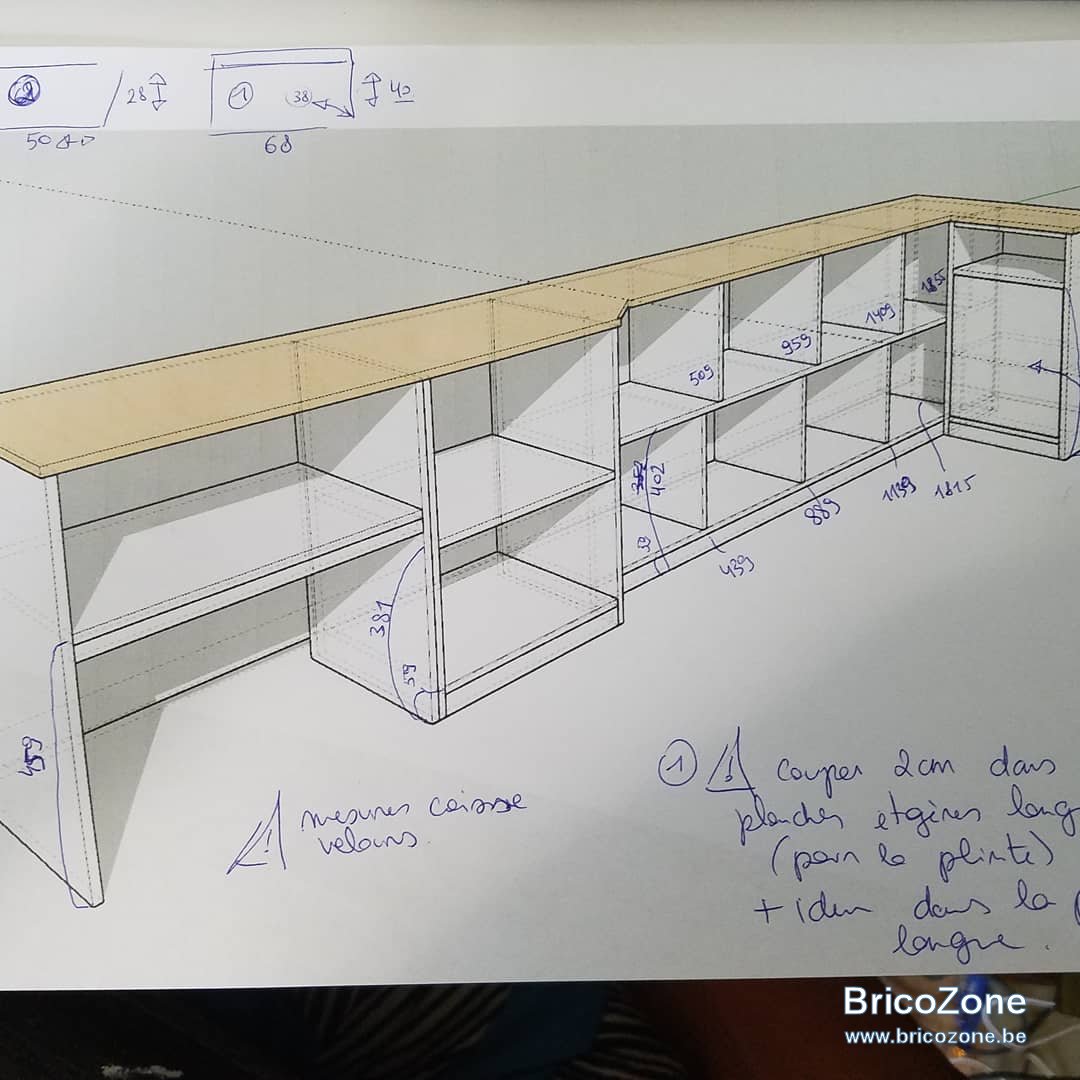 28
1
38
40
50
68
1855
1409
959
509
402
39
439
889
1139
1815
381
59
459
mesures caisse
velours.
1 ! couper 2cm dans
planches etgères long
(pour la plinte)
+ idem dans la p
longue.
BricoZone
www.bricozone.be